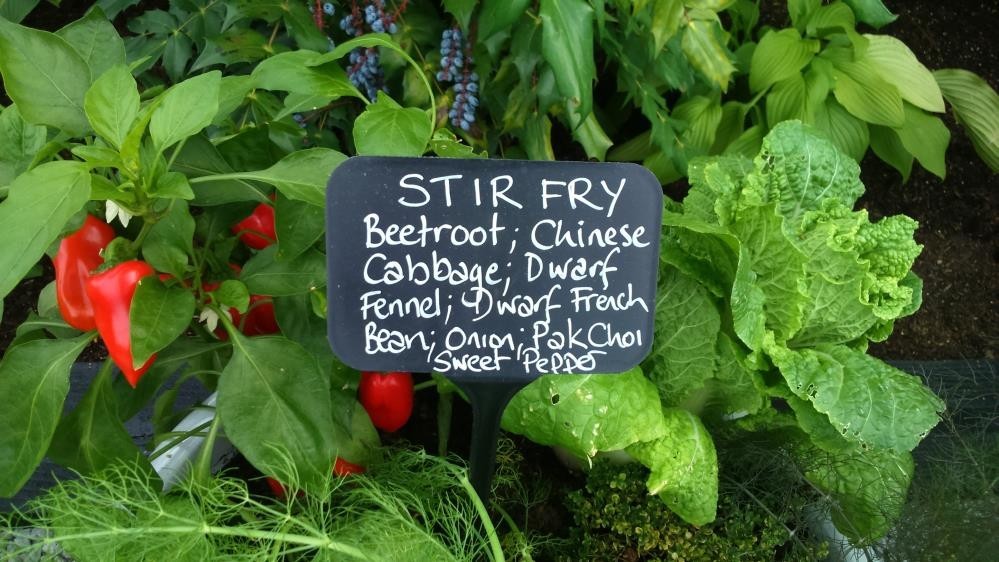 STIR FRY
Beetroot; Chinese
Cabbage; Dwarf
Fennel; Dwarf French
Bean; Onion; Pak Choi
Sweet Pepper